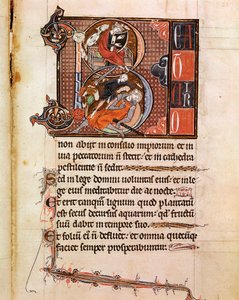 B
non abiit in consilio impiorum et in
uia peccatorum ñ stetit: et in cathedra
pestilentie ñ sedit.
Sed in lege domini uoluntas eius: et in
lege eius meditabitur die ac nocte.
Et erit tamq̄m lignum quod plantatū
est secus decursus aquarum: qd̄ fructū
suū dabit in tempore suo.
Et foliū ei' ñ defluet: et omnia quecūq;
faciet semper prosperabuntur.